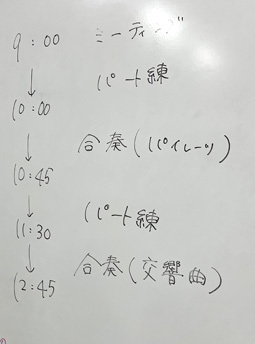 9:00 ミーティング
↓ パート練
10:00
↓ 合奏(パイレーツ)
10:45
↓ パート練
11:30
↓ 合奏(交響曲)
12:45